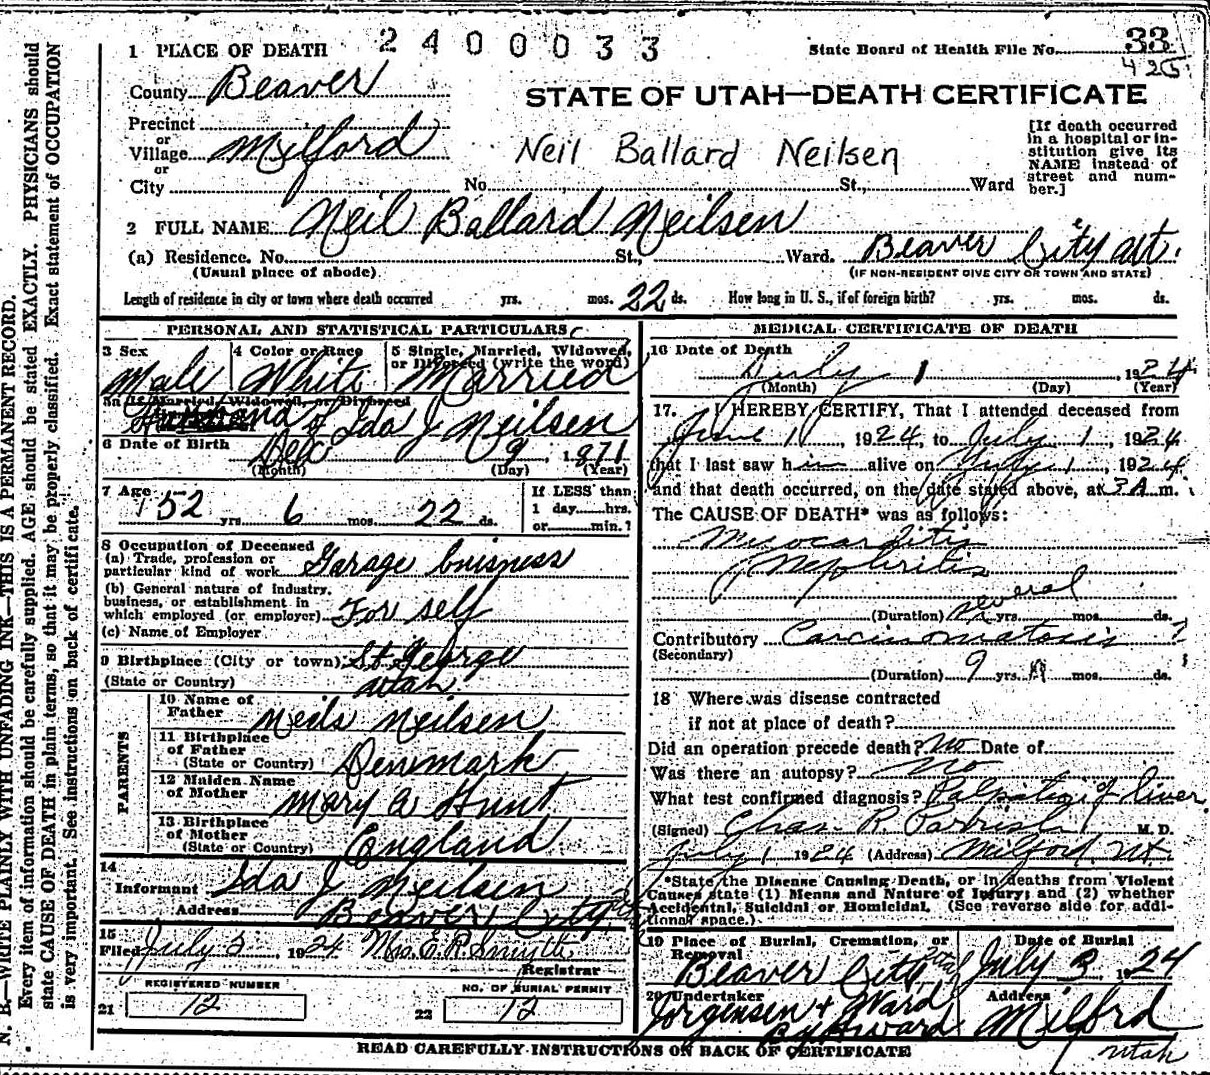 2400033
State Board of Health File No. 33
425
1 PLACE OF DEATH
County Beaver
STATE OF UTAH—DEATH CERTIFICATE
Precinct
or
Village Milford
or
City
Neil Ballard Neilsen
[If death occurred
in a hospital or in-
stitution give its
NAME instead of
street and num-
ber.]
No. St., Ward
2 FULL NAME Neil Ballard Neilsen
(a) Residence. No. St., Ward. Beaver City Ut.
(Usual place of abode) (IF NON-RESIDENT GIVE CITY OR TOWN AND STATE)
Length of residence in city or town where death occurred yrs. mos. 22 ds. How long in U. S., if of foreign birth? yrs. mos. ds.
PERSONAL AND STATISTICAL PARTICULARS
3 Sex
Male
4 Color or Race
White
5 Single, Married, Widowed,
or Divorced (write the word)
Married
5a If Married, Widowed, or Divorced
Husband of Ida J Neilsen
6 Date of Birth Dec 9, 1871
(Month) (Day) (Year)
7 Age
52 yrs 6 mos. 22 ds.
If LESS than
1 day hrs.
or min.?
8 Occupation of Deceased
(a) Trade, profession or
particular kind of work Garage buisness
(b) General nature of industry,
business, or establishment in
which employed (or employer) For self
(c) Name of Employer
9 Birthplace (City or town) St George
(State or Country) Utah
PARENTS
10 Name of
Father Neils Neilsen
11 Birthplace
of Father
(State or Country) Denmark
12 Maiden Name
of Mother Mary A Hunt
13 Birthplace
of Mother
(State or Country) England
14
Informant Ida J Neilsen
Address Beaver City
15
Filed July 3, 1924 Mrs. E. R. Smyth
Registrar
REGISTERED NUMBER
21 12
NO. OF BURIAL PERMIT
22 12
MEDICAL CERTIFICATE OF DEATH
16 Date of Death
July 1, 1924
(Month) (Day) (Year)
17. I HEREBY CERTIFY, That I attended deceased from
June 1, 1924, to July 1, 1924
that I last saw him alive on July 1, 1924
and that death occurred, on the date stated above, at 3 A m.
The CAUSE OF DEATH* was as follows:
Myocarditis
Nephritis
(Duration) several yrs. mos. ds.
Contributory Carcinomatosis ?
(Secondary)
(Duration) yrs. mos. ds.
18 Where was disease contracted
if not at place of death?
Did an operation precede death? No Date of
Was there an autopsy? No
What test confirmed diagnosis? Palpation of liver
(Signed) Chas. R. Parrish M. D.
July 1 1924 (Address) Milford, Ut.
*State the Disease Causing Death, or in deaths from Violent
Causes state (1) Means and Nature of Injury; and (2) whether
Accidental, Suicidal or Homicidal. (See reverse side for addi-
tional space.)
19 Place of Burial, Cremation, or
Removal
Beaver City Utah
Date of Burial
July 3, 1924
20 Undertaker
Jorgensen & Ward
By Ward
Address
Milford
Utah
READ CAREFULLY INSTRUCTIONS ON BACK OF CERTIFICATE
N. B.—WRITE PLAINLY WITH UNFADING INK—THIS IS A PERMANENT RECORD.
Every item of information should be carefully supplied. AGE should be stated EXACTLY. PHYSICIANS should
state CAUSE OF DEATH in plain terms, so that it may be properly classified. Exact statement of OCCUPATION
is very important. See instructions on back of certificate.